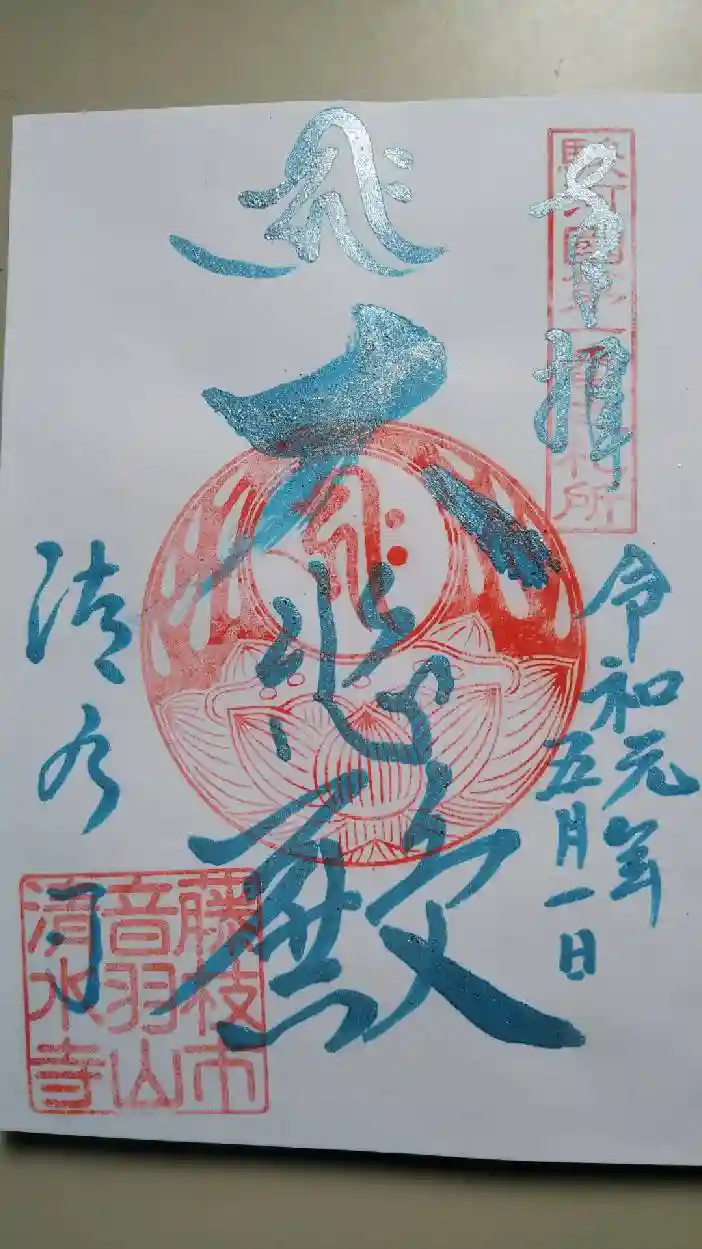 奉拝
駿河國第一番札所
令和元年
五月一日
大悲殿
清水寺
藤枝市
音羽山
清水寺